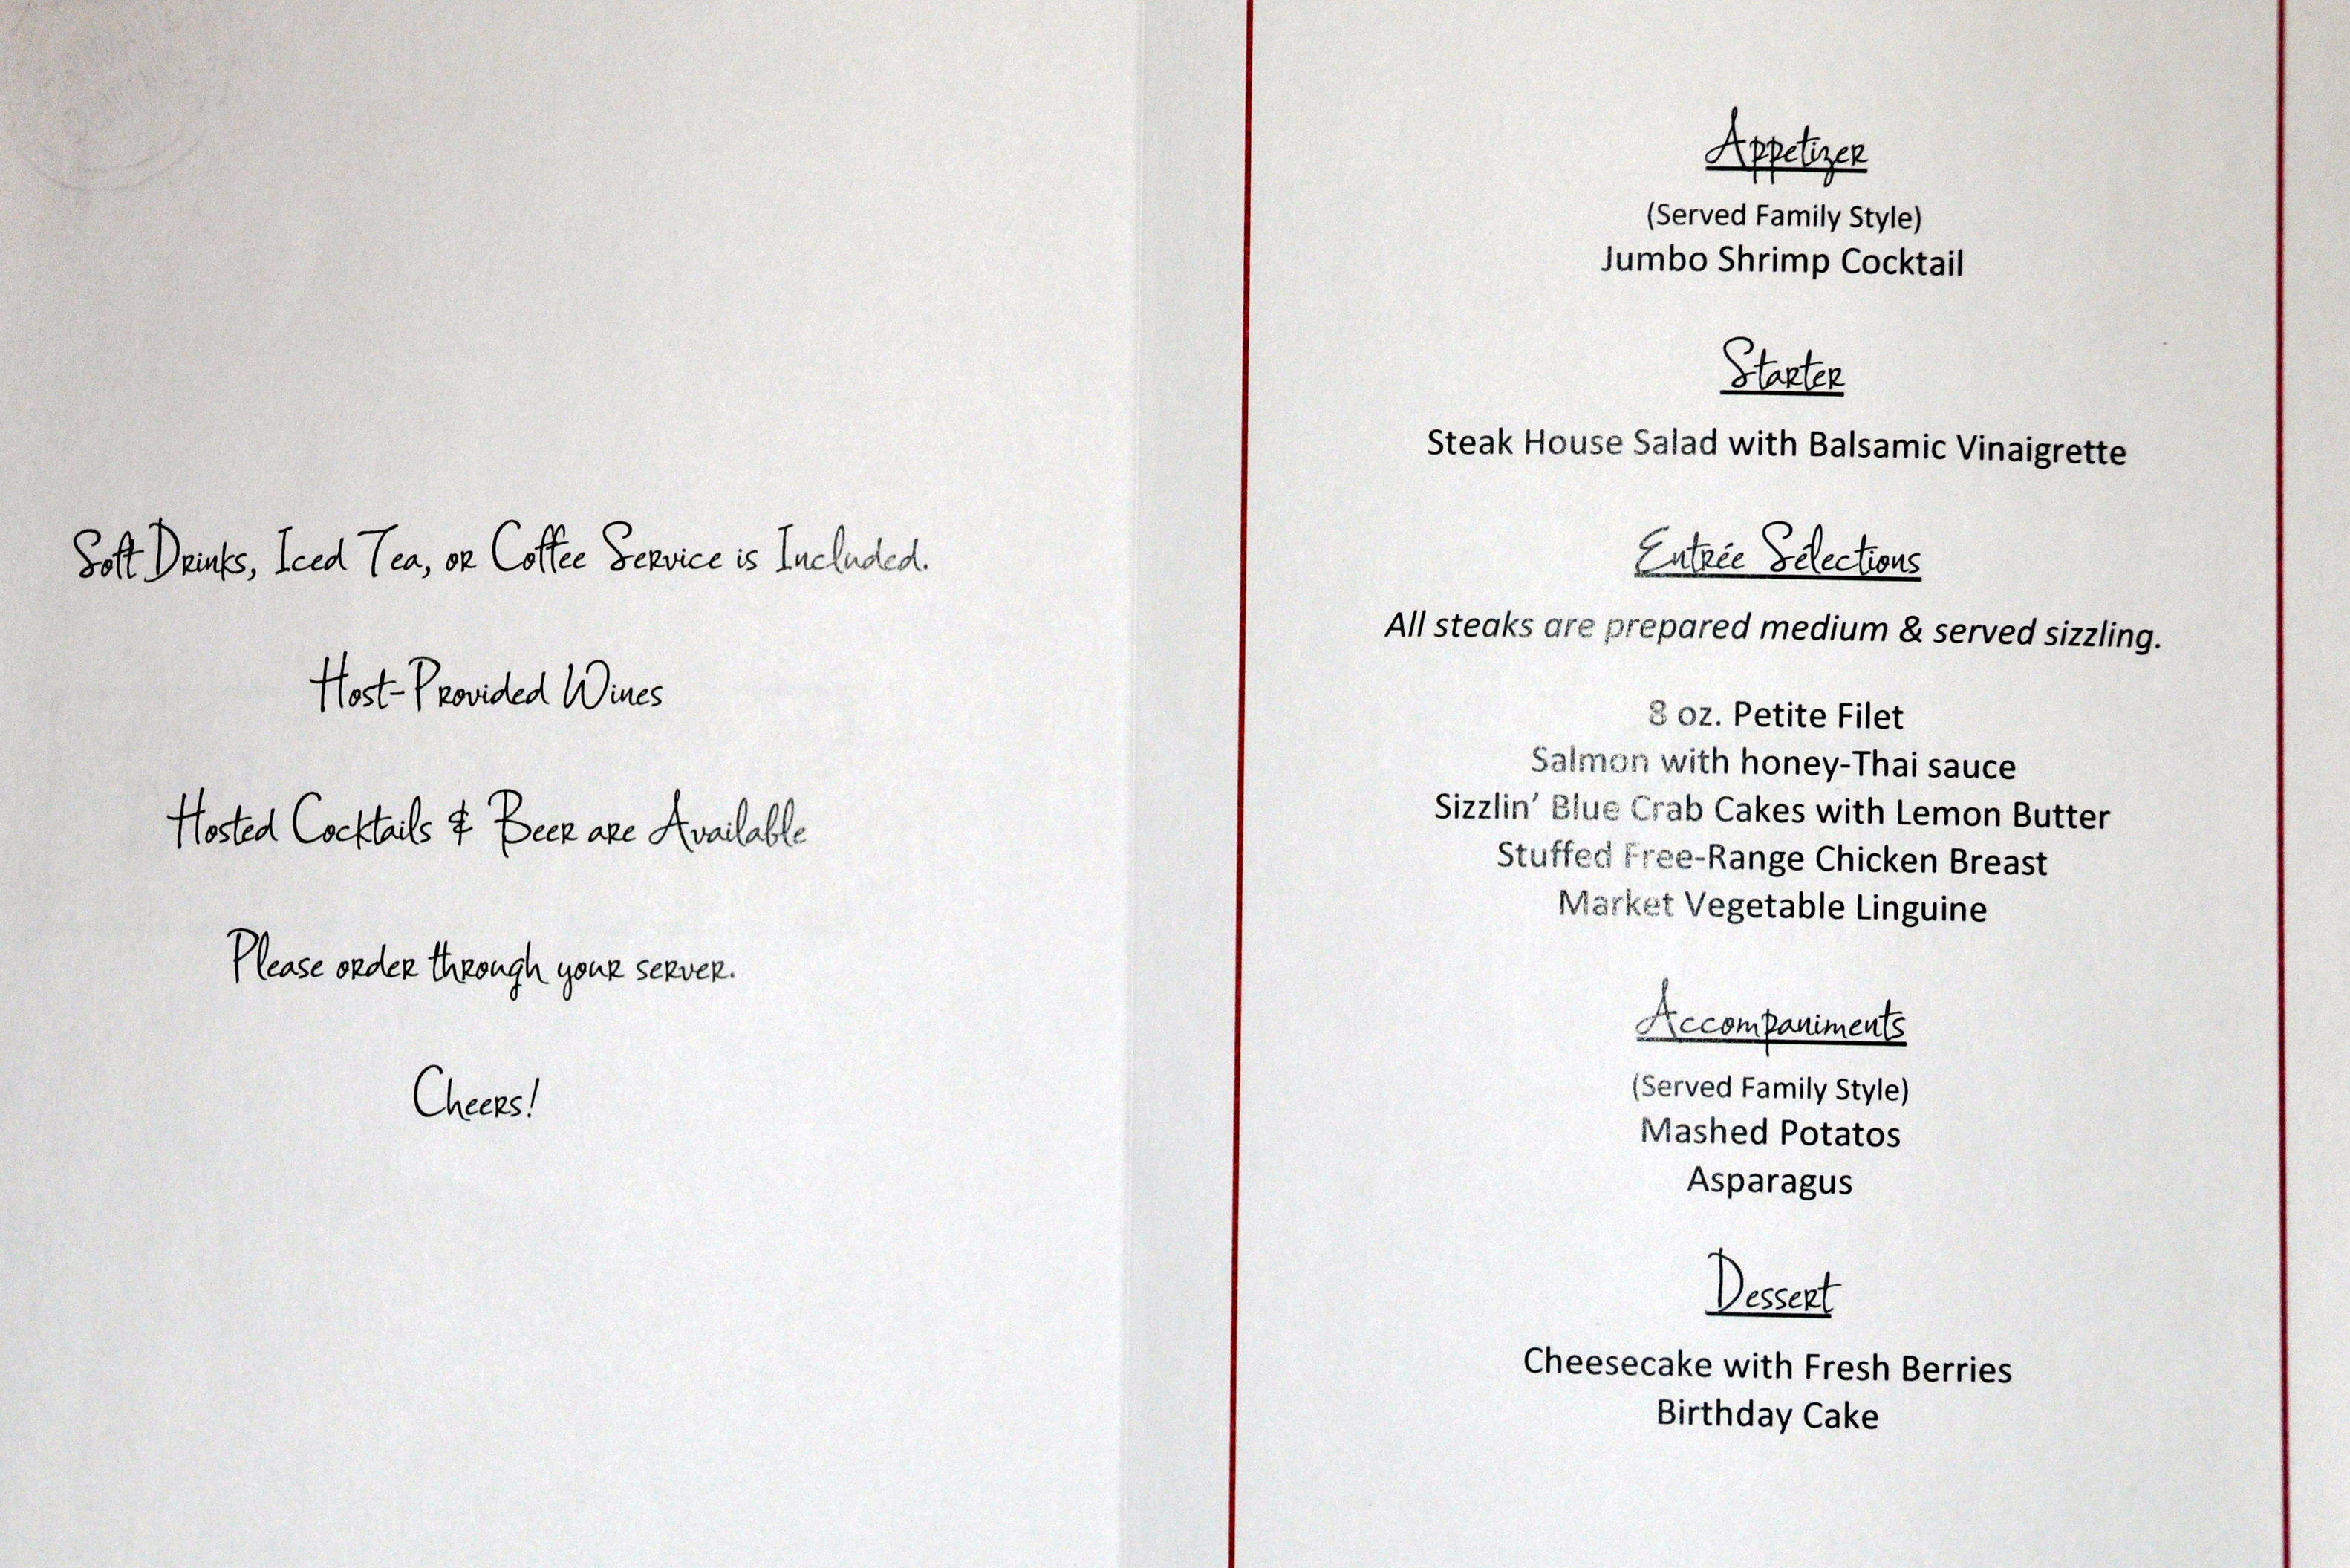 Soft Drinks, Iced Tea, or Coffee Service is Included.
Host-Provided Wines
Hosted Cocktails & Beer are Available
Please order through your server.
Cheers!
Appetizer
(Served Family Style)
Jumbo Shrimp Cocktail
Starter
Steak House Salad with Balsamic Vinaigrette
Entrée Selections
All steaks are prepared medium & served sizzling.
8 oz. Petite Filet
Salmon with honey-Thai sauce
Sizzlin’ Blue Crab Cakes with Lemon Butter
Stuffed Free-Range Chicken Breast
Market Vegetable Linguine
Accompaniments
(Served Family Style)
Mashed Potatos
Asparagus
Dessert
Cheesecake with Fresh Berries
Birthday Cake